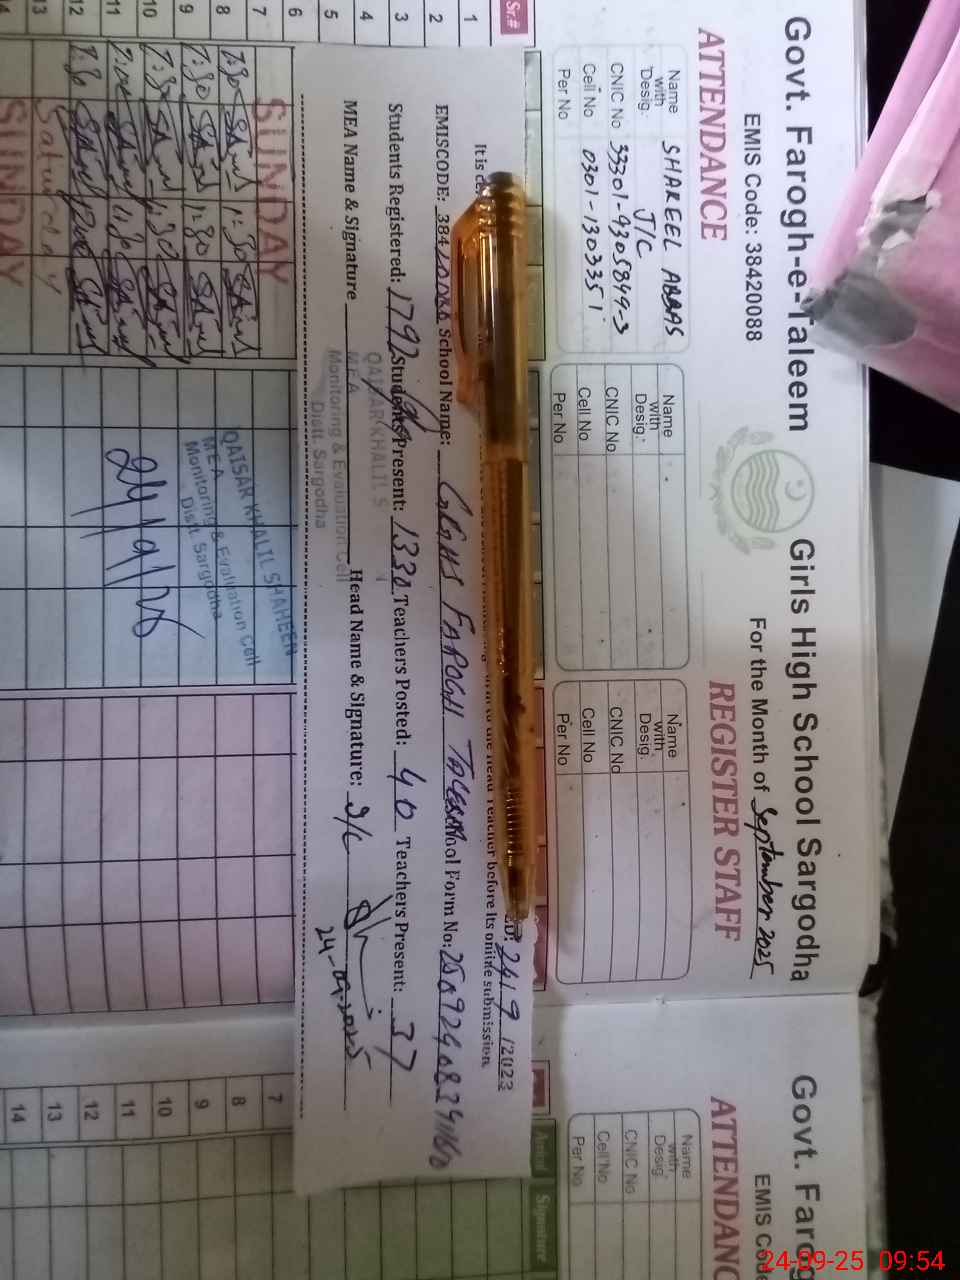 Govt. Farogh-e-Taleem Girls High School Sargodha
EMIS Code: 38420088 For the Month of September 2025
ATTENDANCE REGISTER STAFF
Name with Desig. SHAREEL ABBAS J/C
CNIC No 33301-9305849-3
Cell No 0301-1303351
Per No
Name with Desig.
CNIC No
Cell No
Per No
Name with Desig.
CNIC No
Cell No
Per No
Sr.#
1
2
3
4
5
6
7
8
9
10
11
12
13
14
It is
to the Head Teacher before its online submission
24/9/2023
EMISCODE: School Name: GGHS FAROGH School Form No:
Students Registered: 1792 Students Present: 1330 Teachers Posted: 40 Teachers Present: 37
MEA Name & Signature Head Name & Signature: I/C
24-09-2025
QAISAR KHALIL S
MEA
Monitoring & Evaluation Cell
Distt. Sargodha
SUNDAY
7:30 1:30
7:30 1:30
7:30 1:30
11:30
7:30
Saturday
SUNDAY
QAISAR KHALIL SHAHEEN
MEA
Monitoring & Evaluation Cell
Distt. Sargodha
24/9/25
Govt. Farog
EMIS Co
ATTENDANC
Name with Desig.
CNIC No
Cell No
Per No
Arrival Signature
7
8
9
10
11
12
13
14
24-09-25 09:54